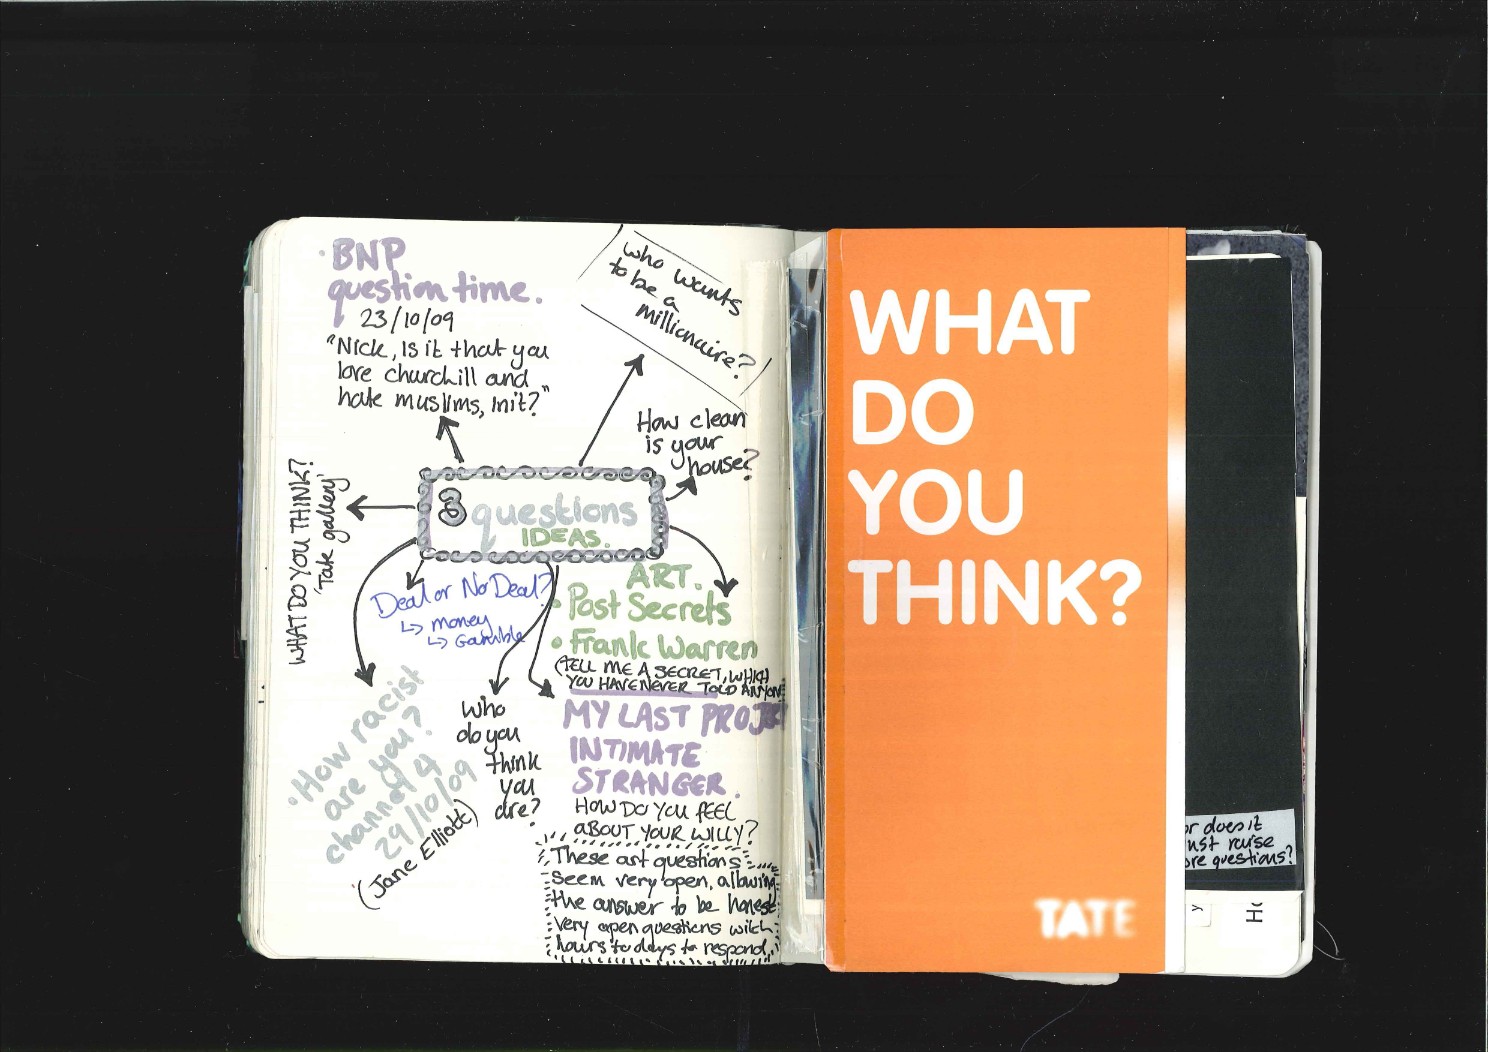 BNP
question time.
23/10/09
"Nick, is it that you
love churchill and
hate muslims, init?"
who wants
to be a
millionaire?
How clean
is your
house?
WHAT DO YOU THINK?
'Tate gallery'
questions
IDEAS.
Deal or No Deal?
↳ money
↳ Gamble
ART.
• Post Secrets
• Frank Warren
(TELL ME A SECRET, WHICH
YOU HAVE NEVER TOLD ANYONE
MY LAST PROJECT
INTIMATE
STRANGER.
HOW DO YOU FEEL
ABOUT YOUR WILLY?
Who
do you
think
you
are?
• How racist
are you?
channel 4
29/10/09
(Jane Elliott)
These art questions
seem very open, allowing
the answer to be honest
very open questions with
hours to days to respond.
WHAT
DO
YOU
THINK?
TATE
or does it
just raise
more questions?
y